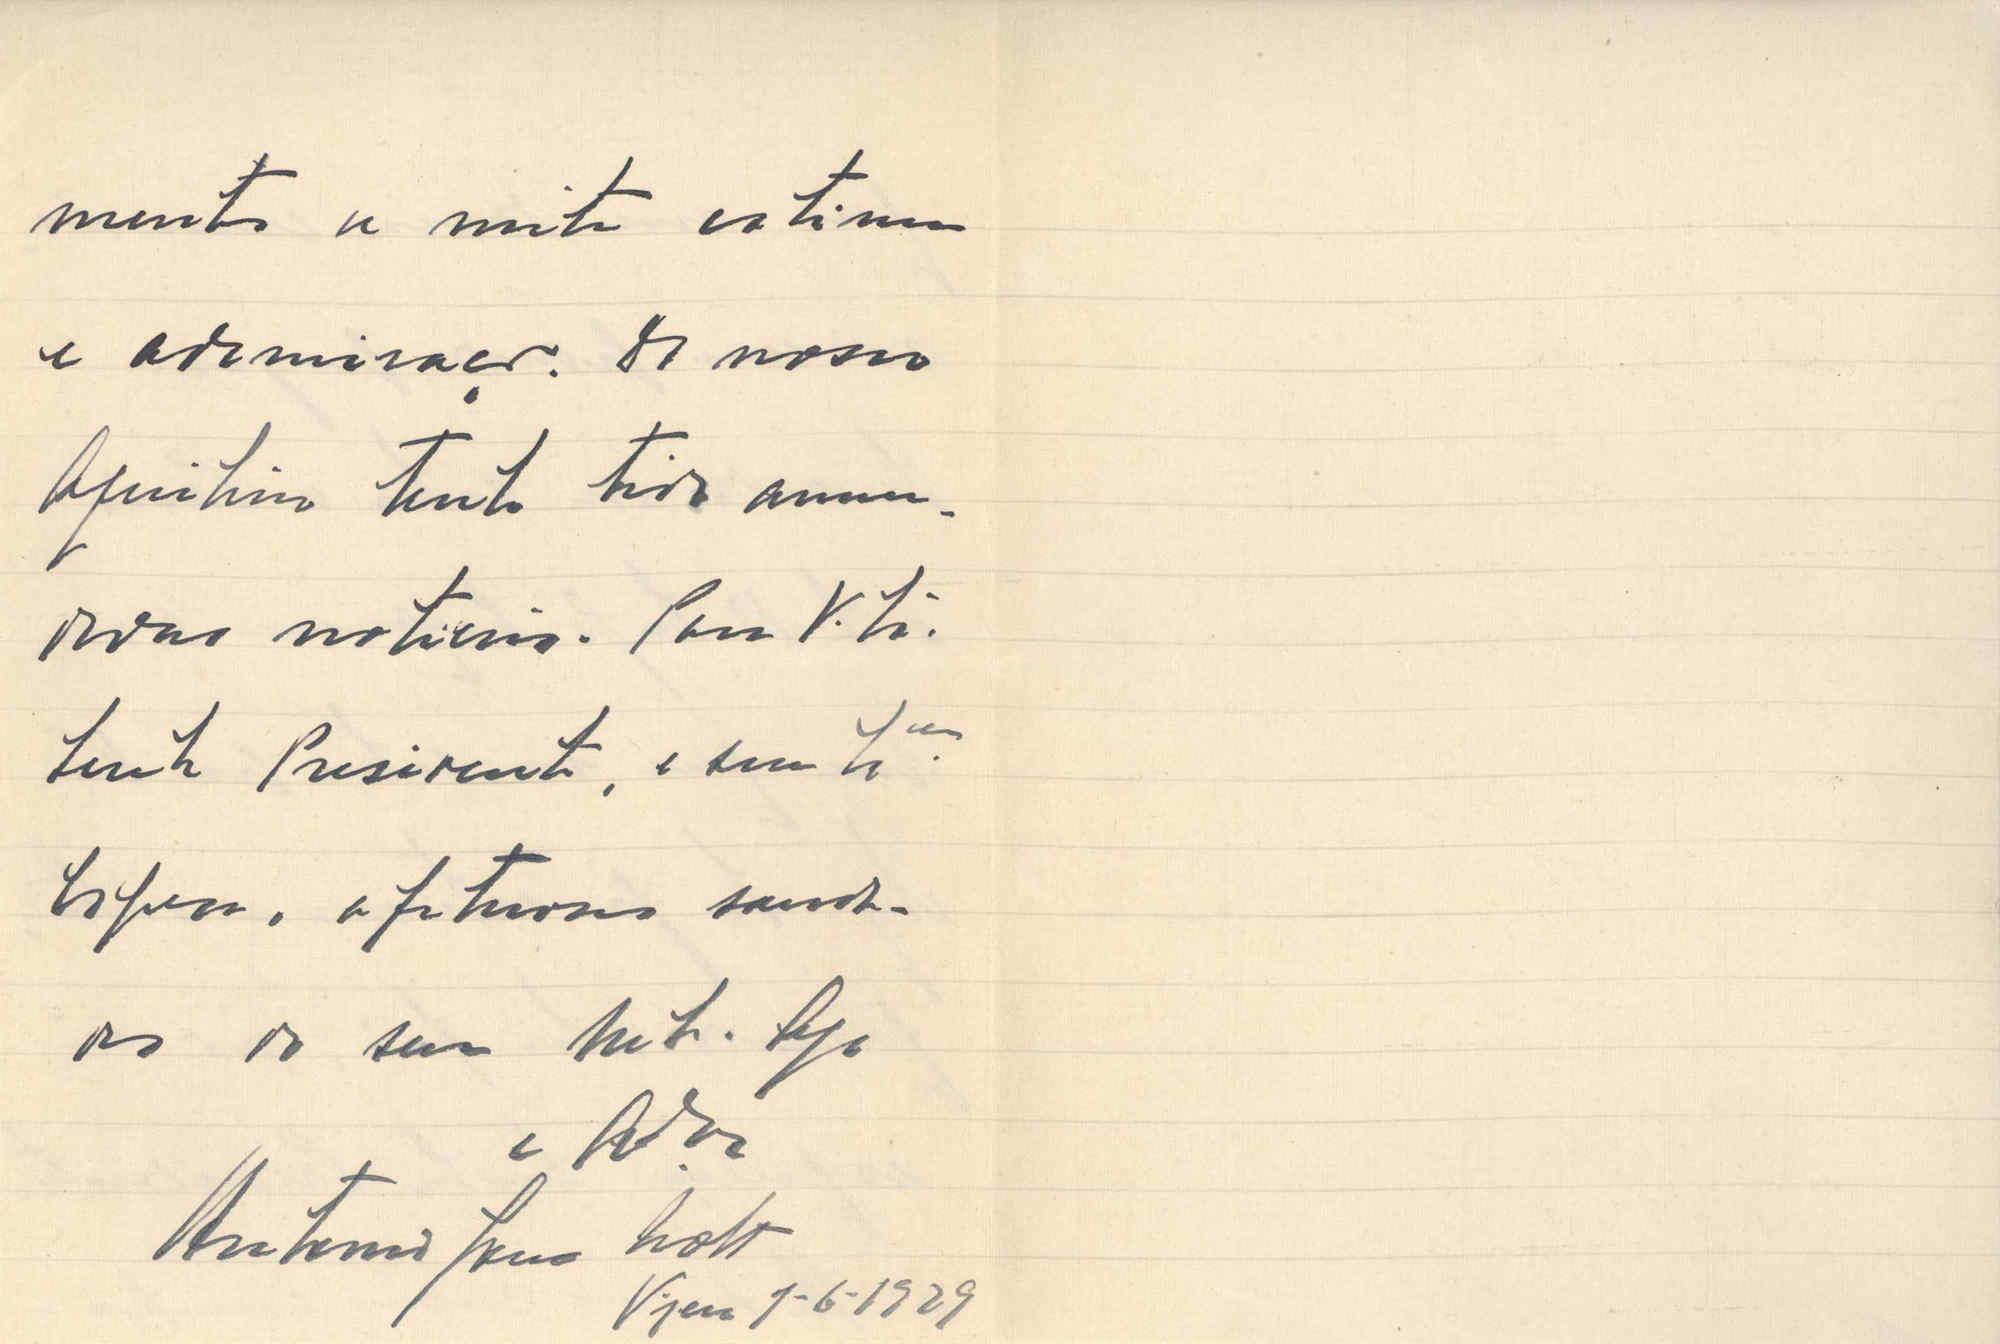 mento e muita estima
e admiração. Do nosso
Aquilino tenho tido amiu-
dadas noticias. Para V. Ex.
tenho Presidente, e sua Ex.ma
Esposa, afetuosas sauda-
des do seu Mt.o Ag.o
e Ador
Antonio Gomes Mota
Vizeu 7-6-1929